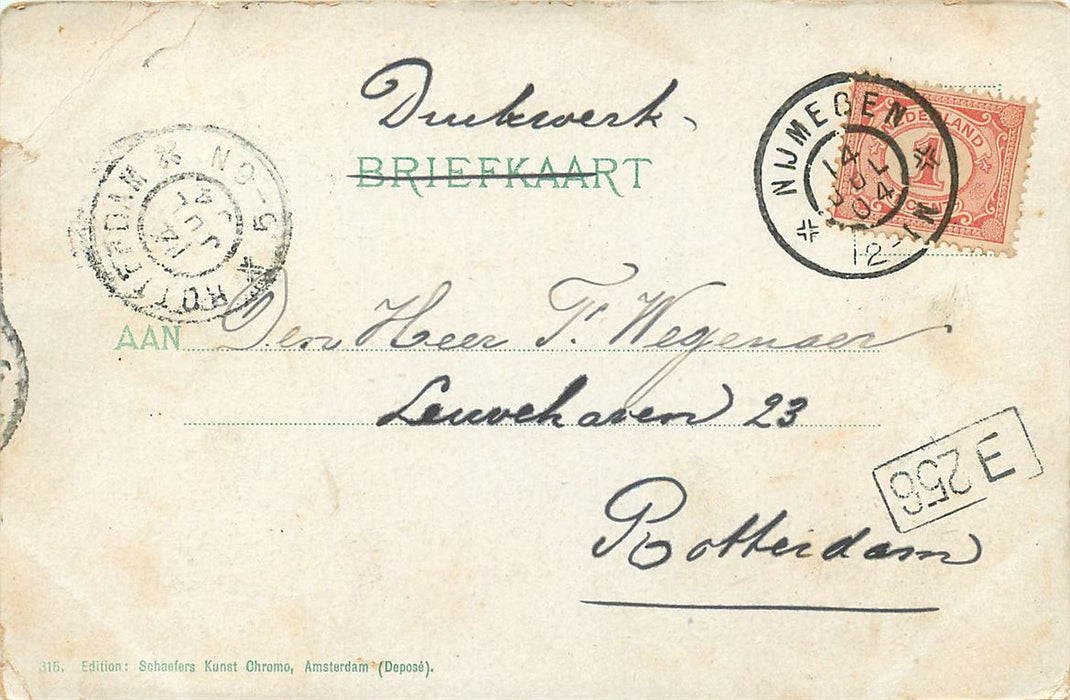 Drukwerk
BRIEFKAART
NIJMEGEN
14 JUL 04
12-1N
NEDERLAND
1
CENT
ROTTERDAM
5-6N
14 JUL 04
AAN Den Heer F. Wegenaer
Leuvehaven 23
Rotterdam
E 256
315. Edition: Schaefers Kunst Chromo, Amsterdam (Deposé).